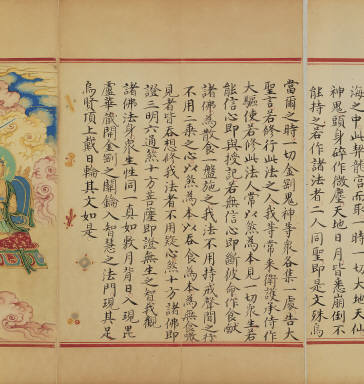 海之中此契龍宮而取時一切大地天仙
神鬼頭身碎作微塵天地日月皆悉崩倒不
能持之若作諸法者二人同聖即是文殊為
當爾之時一切金剛鬼神等衆各集一處告大
聖言若修行此法之人我等常來衛護承侍作
大驅使若修此法人常以煞為本見一切衆生若
能信心即與授記若無信心即斷彼命作食獻
諸佛為散食一盤施之我法不用持戒聲聞之行
不用二乘之心以煞為本以吞食為本為無食噉
見者皆吞想修我法者不用疑心煞十方諸佛即
證三明六通煞十方菩薩即證無生之智我觀
諸佛法身衆生性同一真如數月皆日入現毘
盧華藏開金剛之關鑰入智慧之法門現其足
烏賢頂上戴日輪其文如是